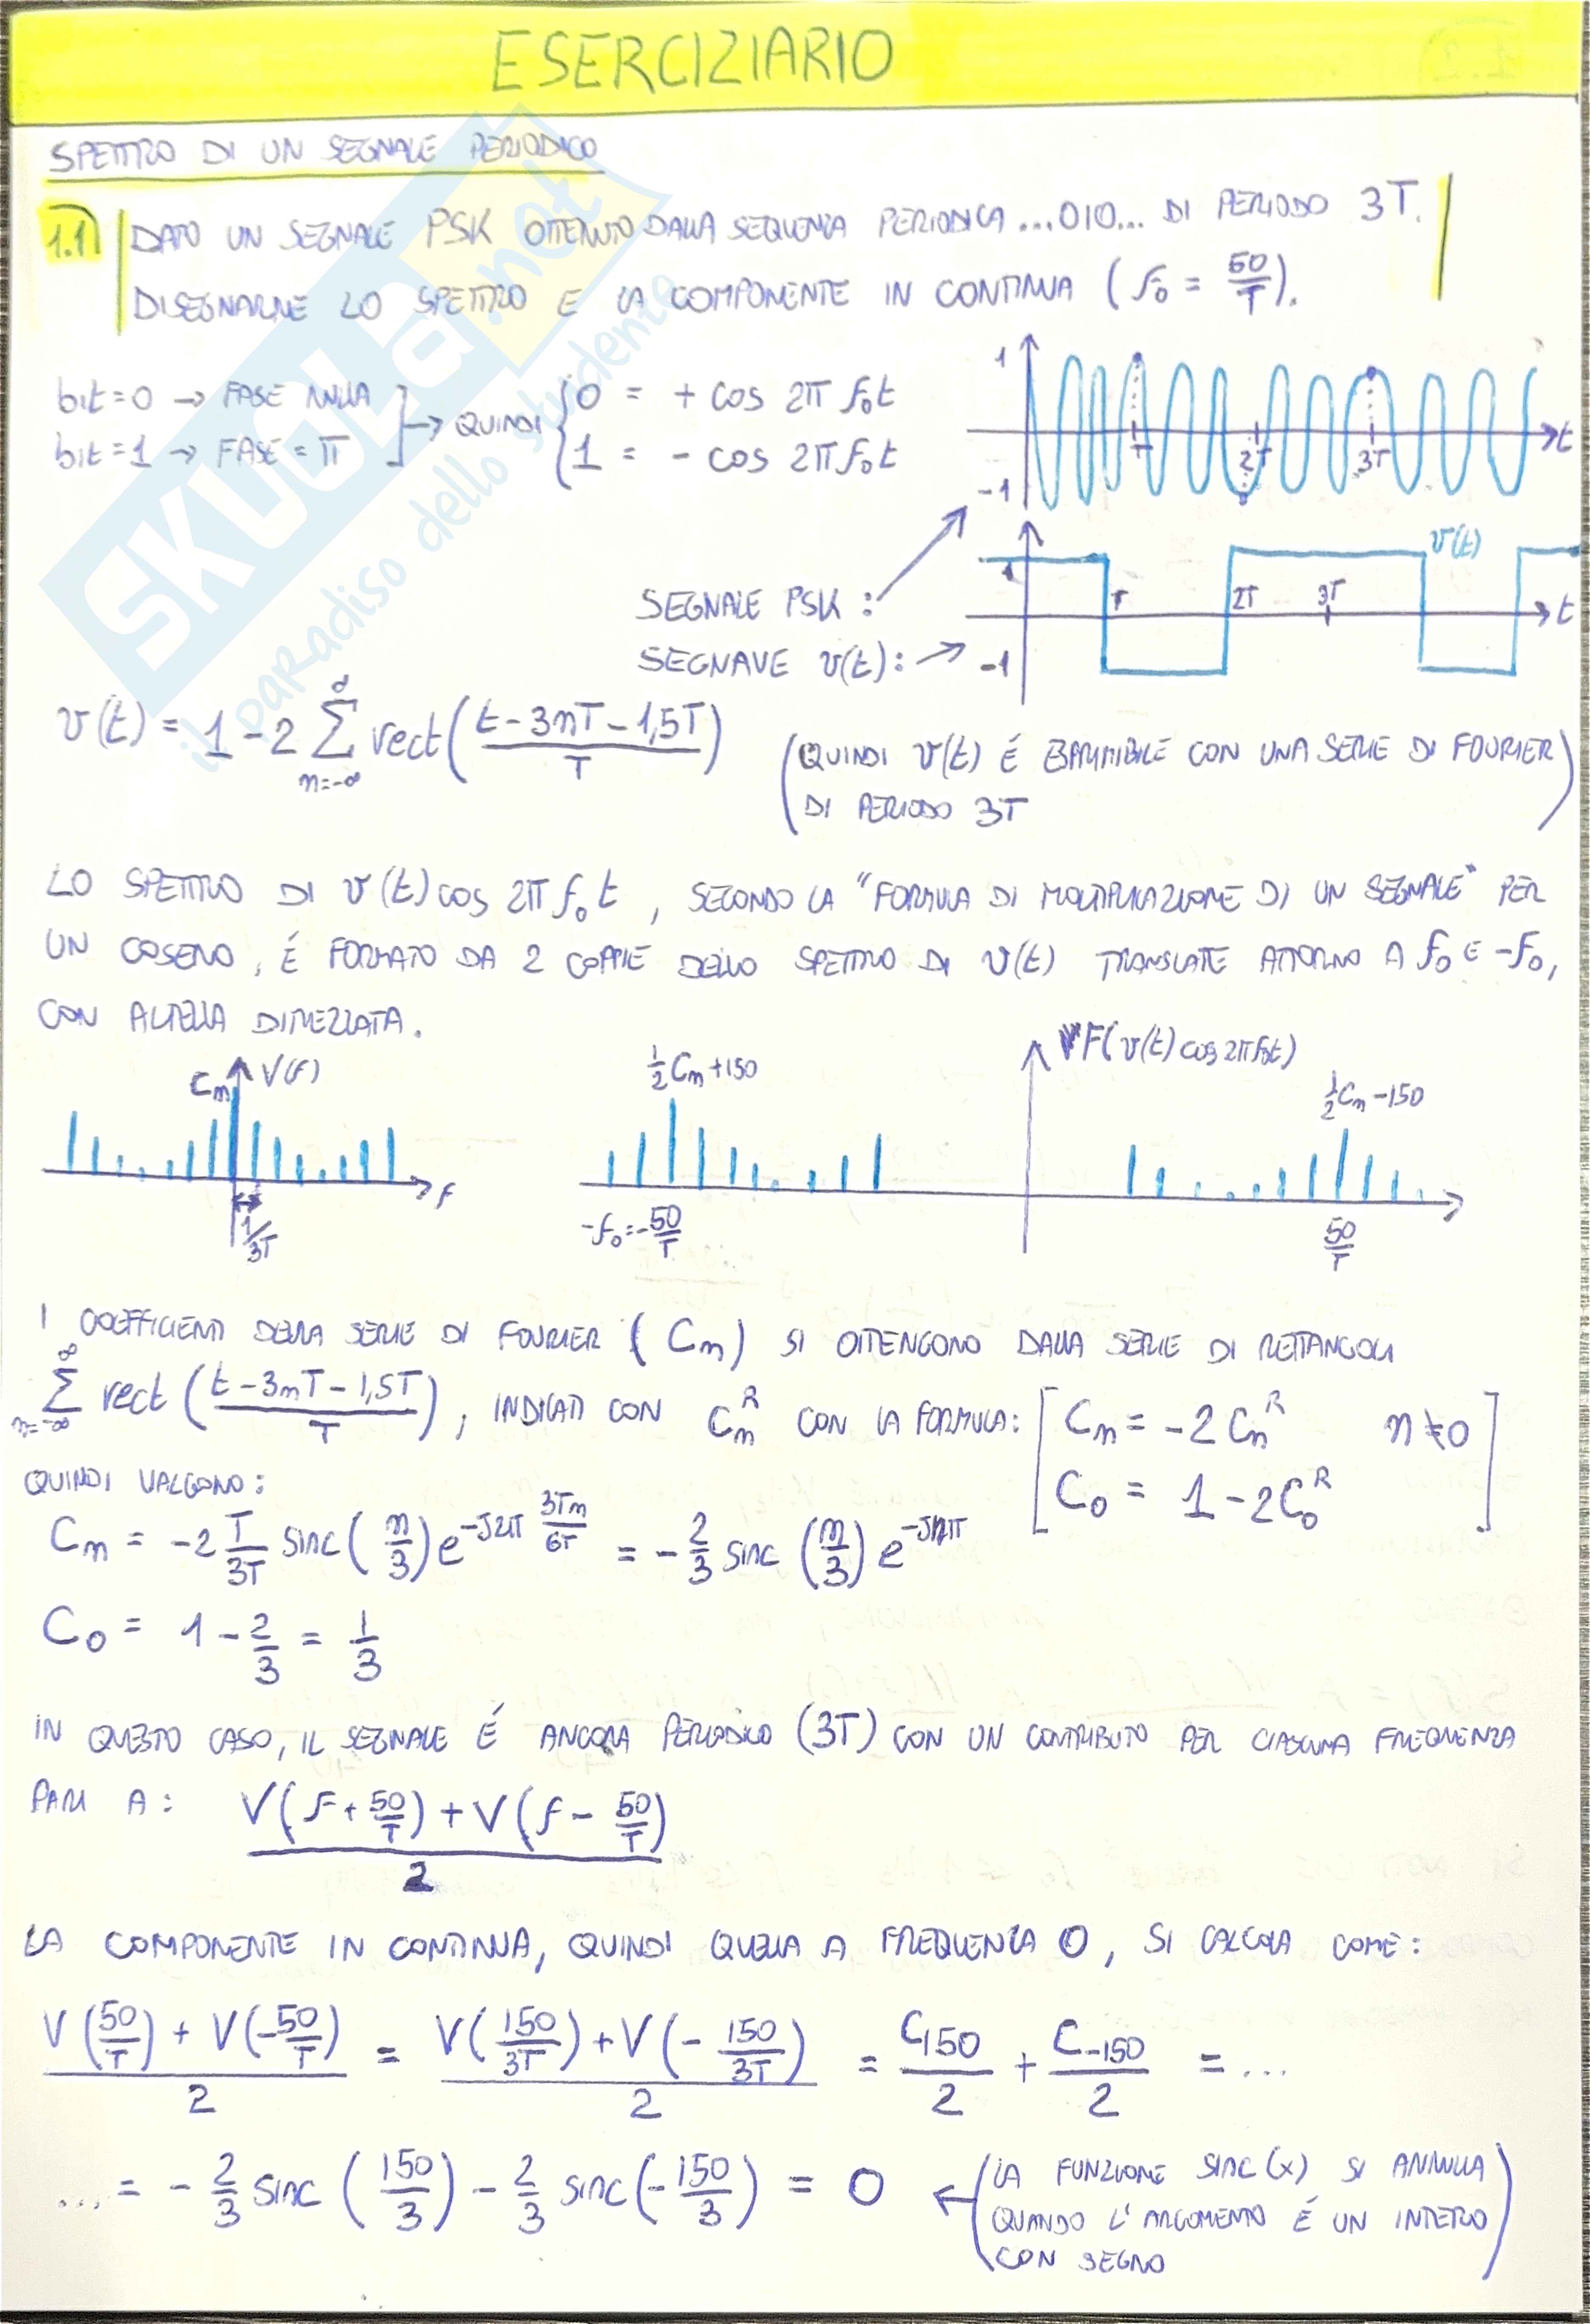 ESERCIZIARIO
SPETTRO DI UN SEGNALE PERIODICO
1.1 DATO UN SEGNALE PSK OTTENUTO DALLA SEQUENZA PERIODICA ...010... DI PERIODO 3T.
DISEGNARNE LO SPETTRO E LA COMPONENTE IN CONTINUA (f₀ = 50/T).
bit=0 → FASE NULLA
bit=1 → FASE = π
→ QUINDI
0 = + cos 2π f₀t
1 = - cos 2π f₀t
1
-1
T
2T
3T
t
SEGNALE PSK :
SEGNAVE v(t):
1
-1
T
2T
3T
v(t)
t
v(t) = 1 - 2 ∑_{n=-∞}^{∞} rect((t - 3nT - 1,5T)/T)
(QUINDI v(t) É ESPRIMIBILE CON UNA SERIE DI FOURIER
DI PERIODO 3T)
LO SPETTRO DI v(t) cos 2π f₀ t, SECONDO LA "FORMULA DI MOLTIPLICAZIONE DI UN SEGNALE" PER
UN COSENO, É FORMATO DA 2 COPPIE DELLO SPETTRO DI v(t) TRANSLATE ATTORNO A f₀ E -f₀,
CON ALTEZZA DIMEZZATA.
Cn V(f)
f
1/3T
½Cn+150
-f₀=-50/T
F(v(t) cos 2πf₀t)
½Cn-150
50/T
I COEFFICIENTI DELLA SERIE DI FOURIER (Cn) SI OTTENGONO DALLA SERIE DI RETTANGOLI
∑_{n=-∞}^{∞} rect((t - 3nT - 1,5T)/T), INDICATI CON Cn^R CON LA FORMULA: [Cn = -2 Cn^R n≠0
C₀ = 1 - 2C₀^R]
QUINDI VALGONO:
Cn = -2 T/3T sinc(n/3) e^{-J2π 3Tn/6T} = -2/3 sinc(n/3) e^{-Jnπ}
C₀ = 1 - 2/3 = 1/3
IN QUESTO CASO, IL SEGNALE É ANCORA PERIODICO (3T) CON UN CONTRIBUTO PER CIASCUNA FREQUENZA
PARI A: (V(f + 50/T) + V(f - 50/T))/2
LA COMPONENTE IN CONTINUA, QUINDI QUELLA A FREQUENZA 0, SI CALCOLA COME:
(V(50/T) + V(-50/T))/2 = (V(150/3T) + V(-150/3T))/2 = C₁₅₀/2 + C₋₁₅₀/2 = ...
... = - 2/3 sinc(150/3) - 2/3 sinc(-150/3) = 0 ← (LA FUNZIONE sinc(x) SI ANNULLA
QUANDO L'ARGOMENTO É UN INTERO
CON SEGNO)
SKUOLA.net
il paradiso dello studente